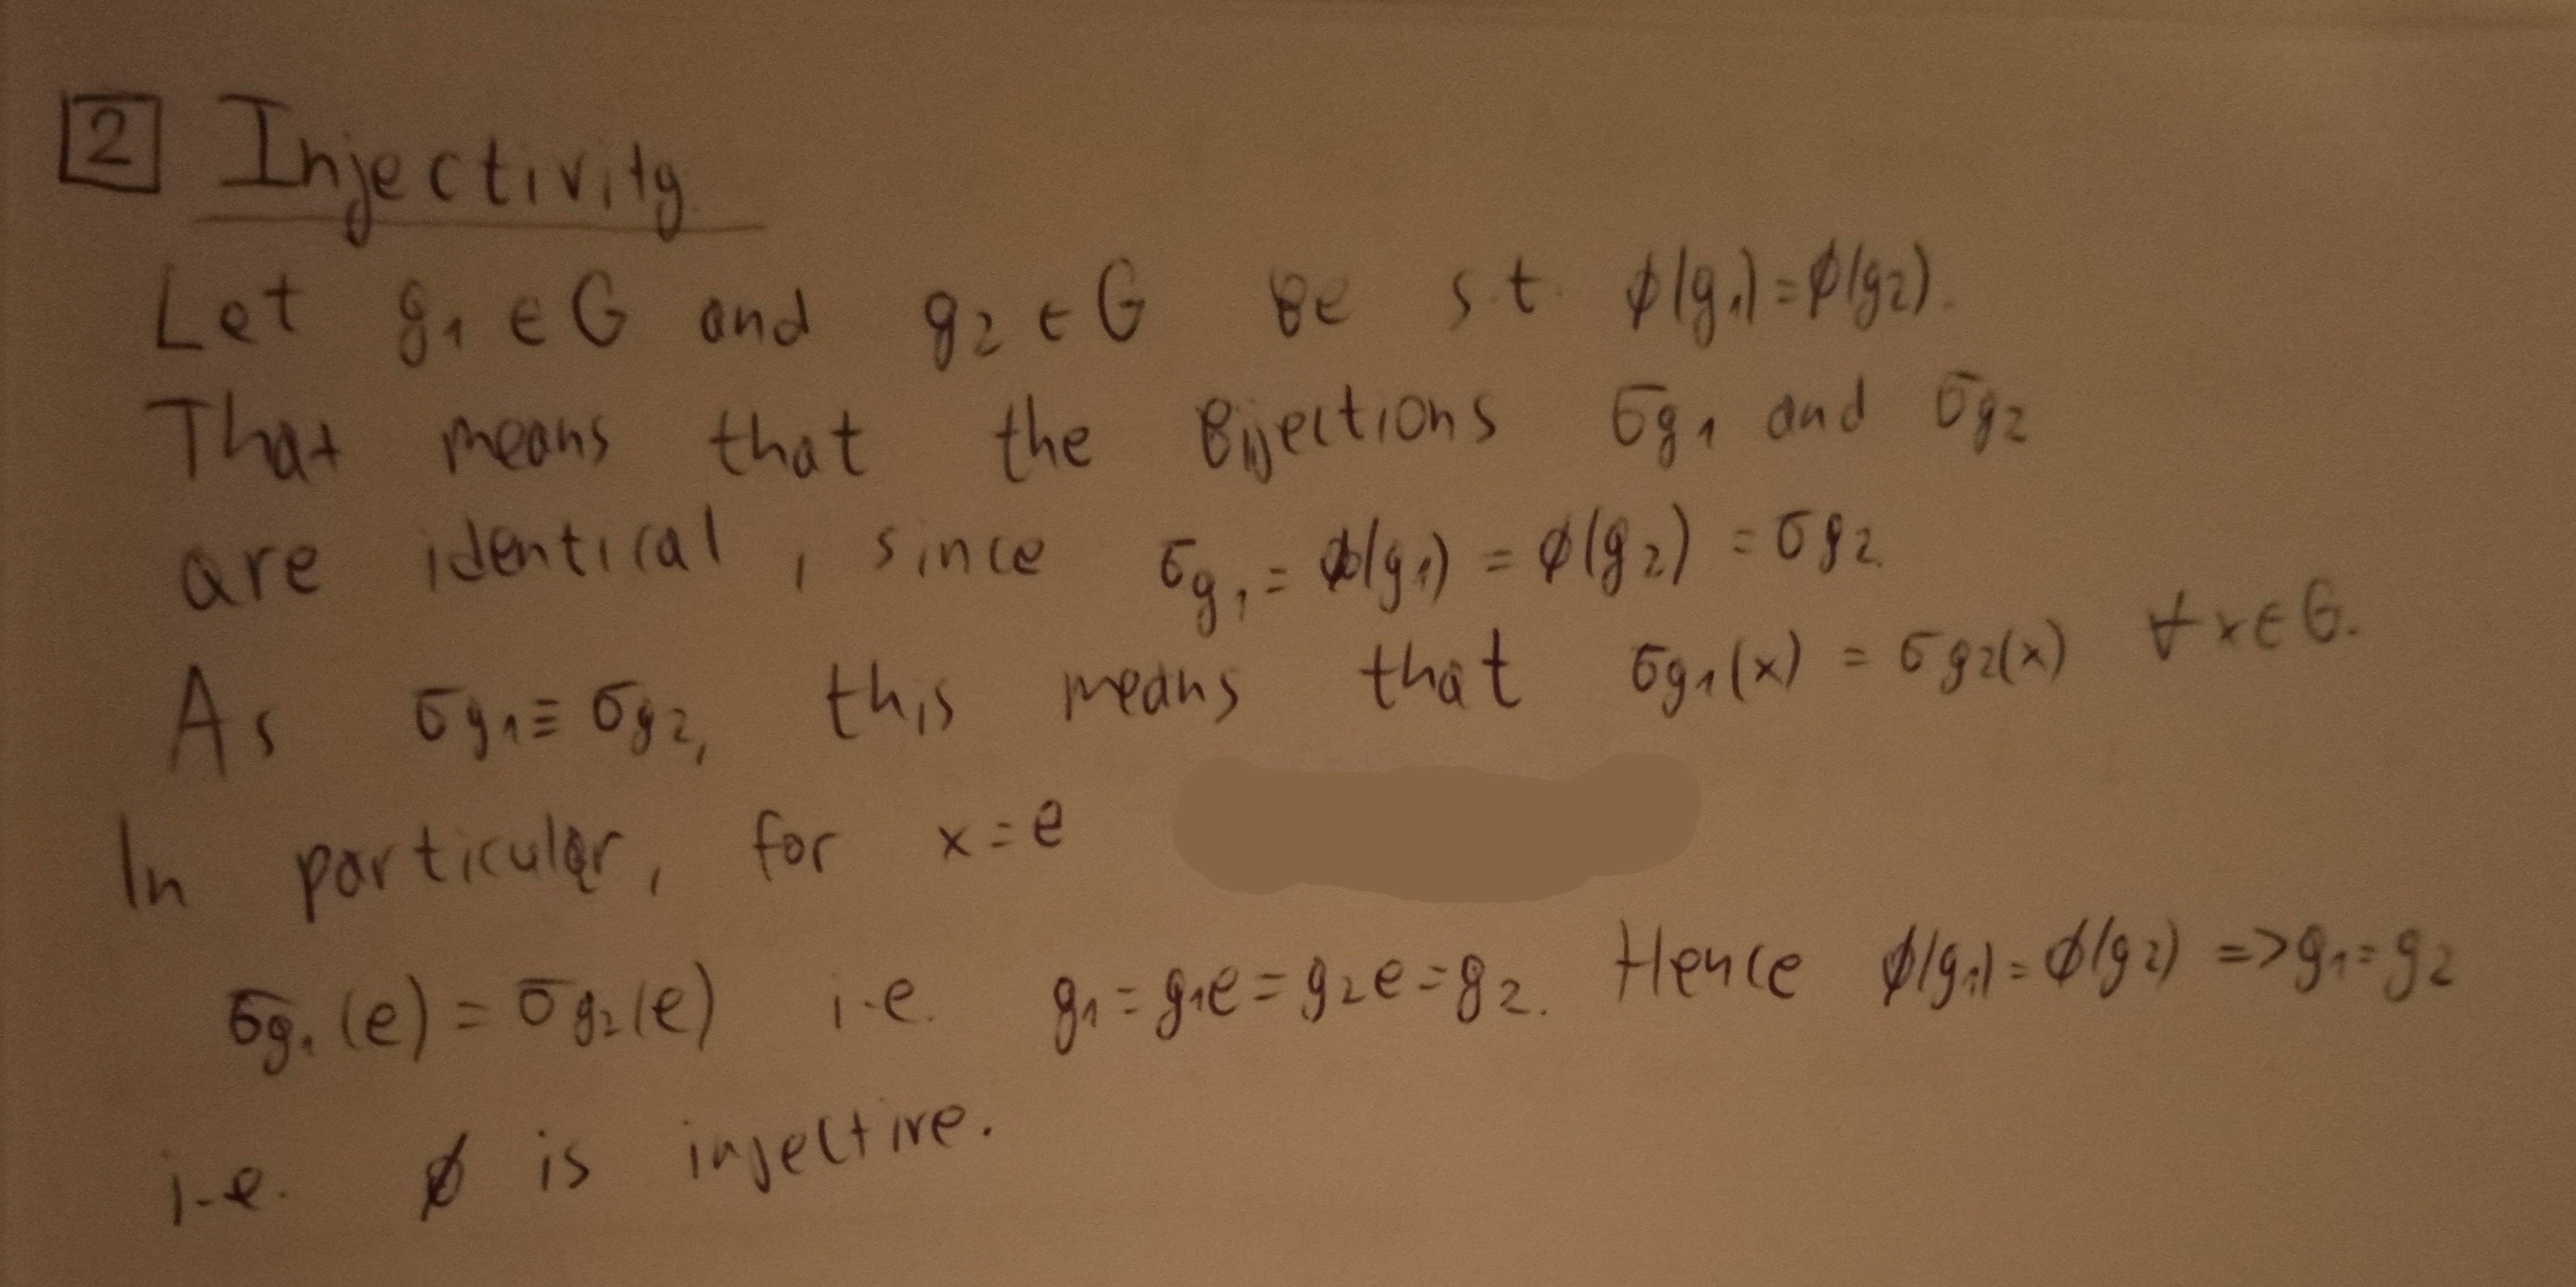 2 Injectivity
Let g₁ ∈ G and g₂ ∈ G Be s.t. ϕ(g₁)=ϕ(g₂).
That means that the Bijections σg₁ and σg₂
are identical, since σg₁ = ϕ(g₁) = ϕ(g₂) = σg₂.
As σg₁ ≡ σg₂, this means that σg₁(x) = σg₂(x) ∀x∈G.
In particular, for x=e
σg₁(e) = σg₂(e) i.e. g₁ = g₁e = g₂e = g₂. Hence ϕ(g₁) = ϕ(g₂) => g₁ = g₂
i.e. ϕ is injective.